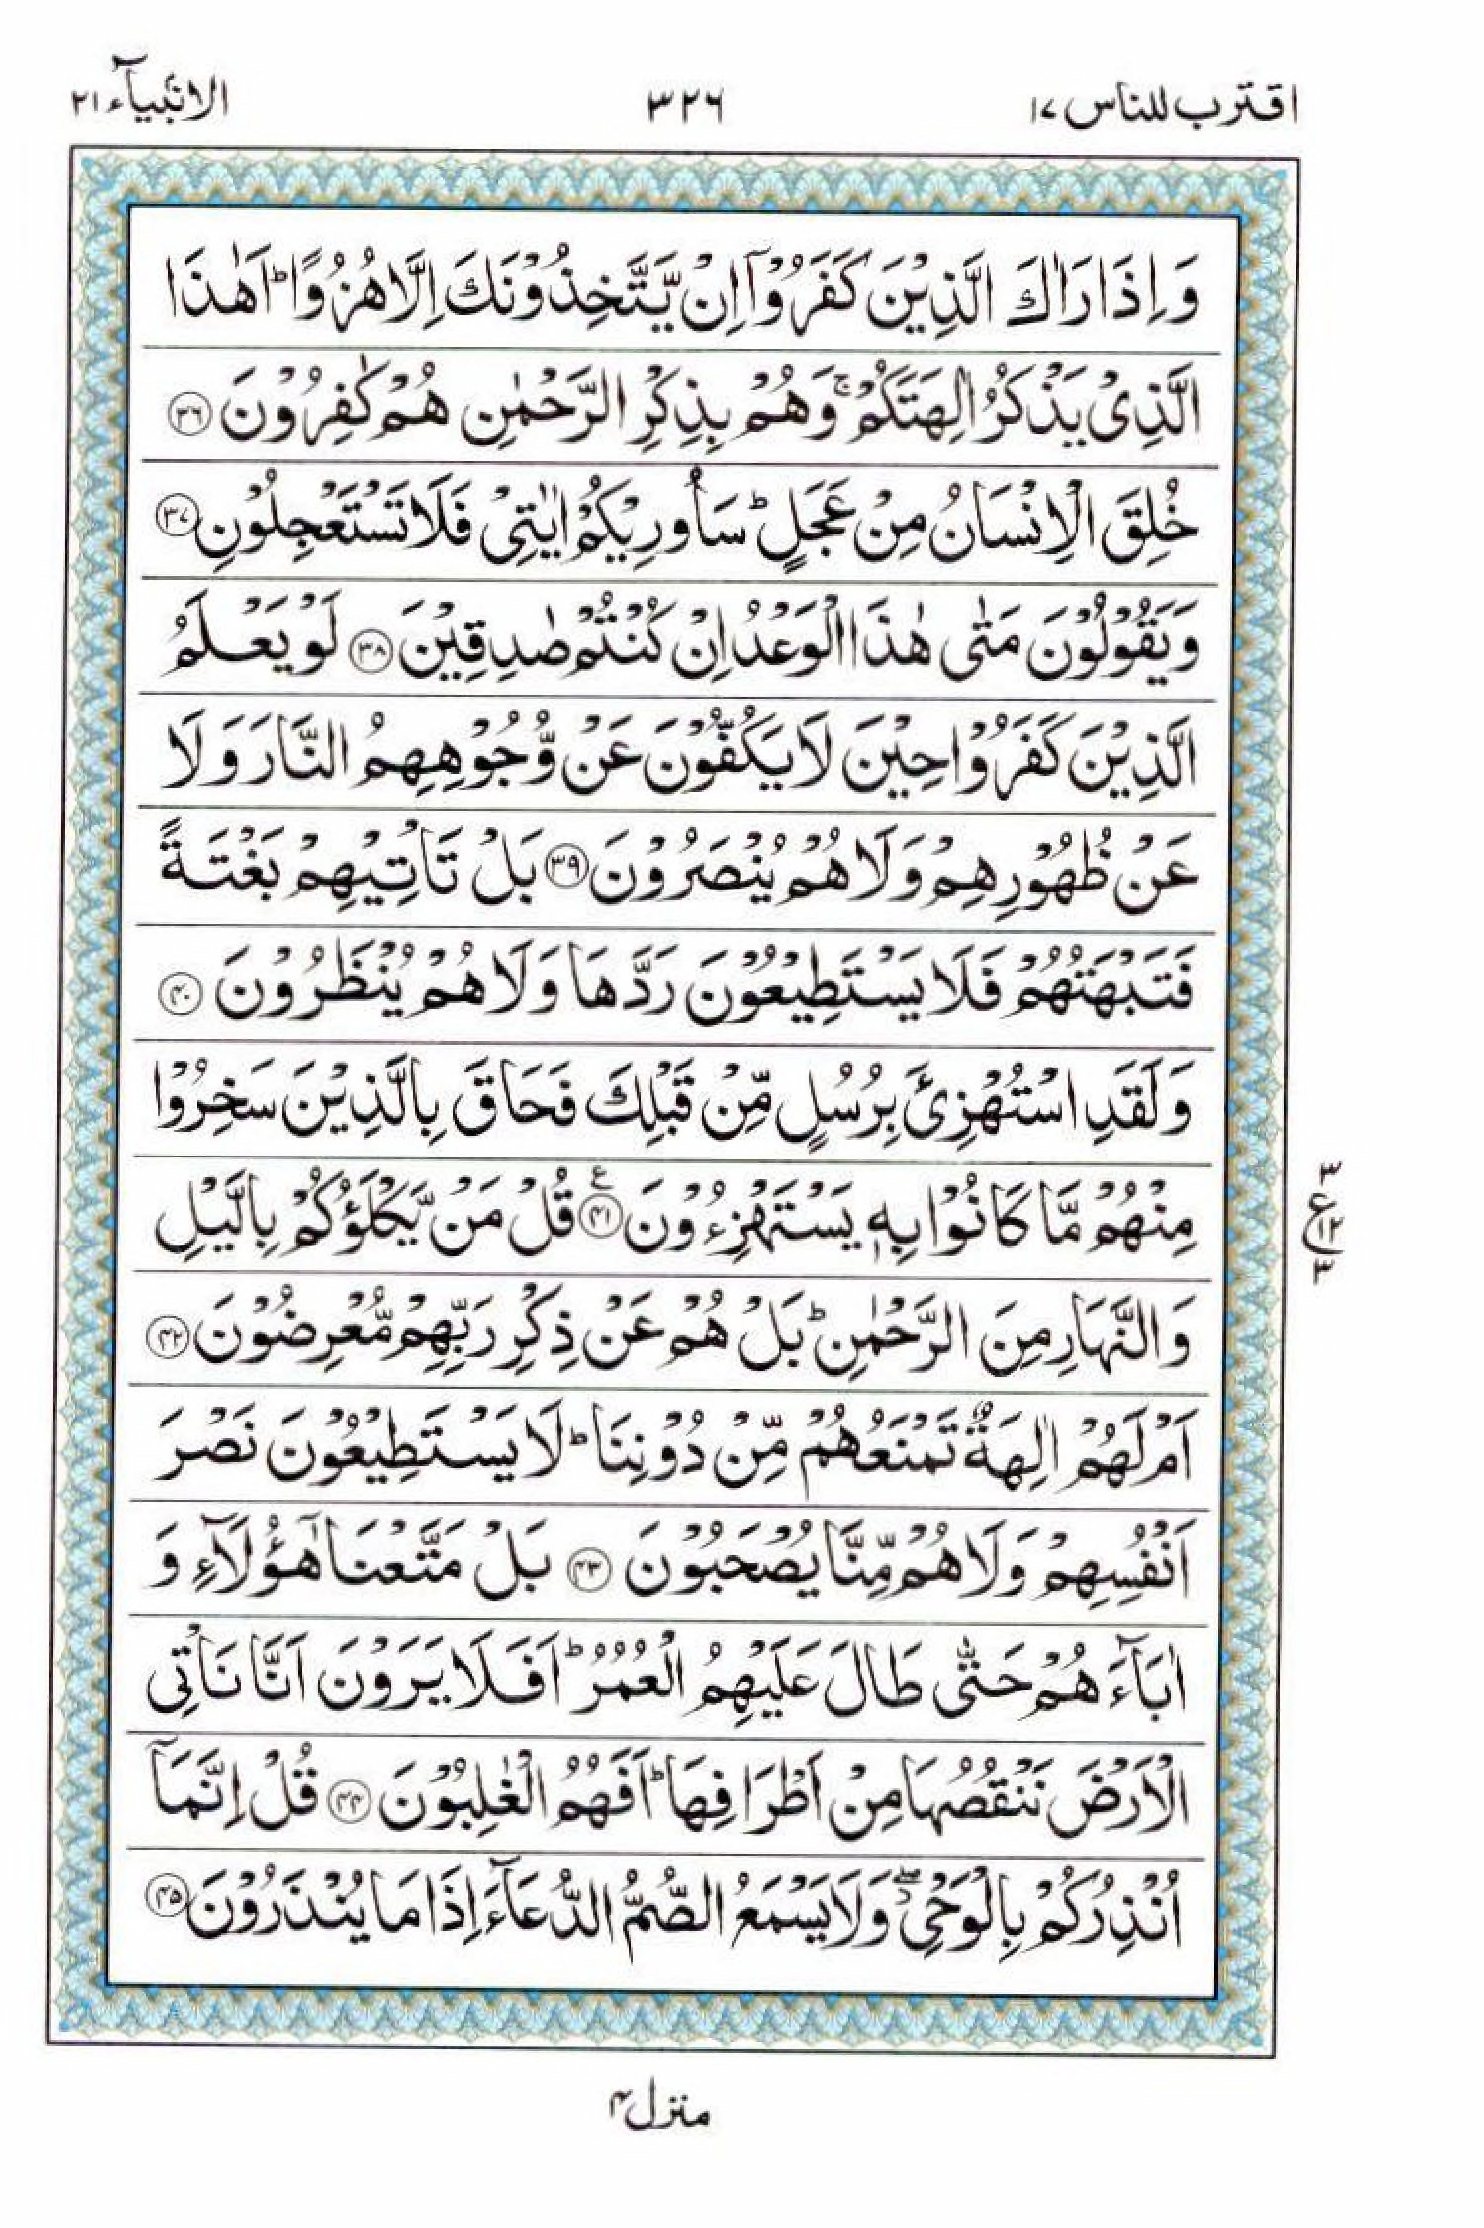 اقترب للناس ۱۷ ۳۲۶ الانبیآء ۲۱
وَاِذَا رَاٰكَ الَّذِیْنَ كَفَرُوْۤا اِنْ یَّتَّخِذُوْنَكَ اِلَّا هُزُوًا ؕ اَهٰذَا
الَّذِیْ یَذْكُرُ اٰلِهَتَكُمْ ۚ وَهُمْ بِذِكْرِ الرَّحْمٰنِ هُمْ كٰفِرُوْنَ ۝۳۶
خُلِقَ الْاِنْسَانُ مِنْ عَجَلٍ ؕ سَاُورِیْكُمْ اٰیٰتِیْ فَلَا تَسْتَعْجِلُوْنِ ۝۳۷
وَیَقُوْلُوْنَ مَتٰی هٰذَا الْوَعْدُ اِنْ كُنْتُمْ صٰدِقِیْنَ ۝۳۸ لَوْ یَعْلَمُ
الَّذِیْنَ كَفَرُوْا حِیْنَ لَا یَكُفُّوْنَ عَنْ وُّجُوْهِهِمُ النَّارَ وَلَا
عَنْ ظُهُوْرِهِمْ وَلَا هُمْ یُنْصَرُوْنَ ۝۳۹ بَلْ تَاْتِیْهِمْ بَغْتَةً
فَتَبْهَتُهُمْ فَلَا یَسْتَطِیْعُوْنَ رَدَّهَا وَلَا هُمْ یُنْظَرُوْنَ ۝۴۰
وَلَقَدِ اسْتُهْزِئَ بِرُسُلٍ مِّنْ قَبْلِكَ فَحَاقَ بِالَّذِیْنَ سَخِرُوْا
مِنْهُمْ مَّا كَانُوْا بِهٖ یَسْتَهْزِءُوْنَ ۝۴۱ ع قُلْ مَنْ یَّكْلَؤُكُمْ بِالَّیْلِ
۳ ع ۱۲ ۳
وَالنَّهَارِ مِنَ الرَّحْمٰنِ ؕ بَلْ هُمْ عَنْ ذِكْرِ رَبِّهِمْ مُّعْرِضُوْنَ ۝۴۲
اَمْ لَهُمْ اٰلِهَةٌ تَمْنَعُهُمْ مِّنْ دُوْنِنَا ؕ لَا یَسْتَطِیْعُوْنَ نَصْرَ
اَنْفُسِهِمْ وَلَا هُمْ مِّنَّا یُصْحَبُوْنَ ۝۴۳ بَلْ مَتَّعْنَا هٰۤؤُلَآءِ وَ
اٰبَآءَهُمْ حَتّٰی طَالَ عَلَیْهِمُ الْعُمُرُ ؕ اَفَلَا یَرَوْنَ اَنَّا نَاْتِی
الْاَرْضَ نَنْقُصُهَا مِنْ اَطْرَافِهَا ؕ اَفَهُمُ الْغٰلِبُوْنَ ۝۴۴ قُلْ اِنَّمَاۤ
اُنْذِرُكُمْ بِالْوَحْیِ ۖؗ وَلَا یَسْمَعُ الصُّمُّ الدُّعَآءَ اِذَا مَا یُنْذَرُوْنَ ۝۴۵
منزل ۴